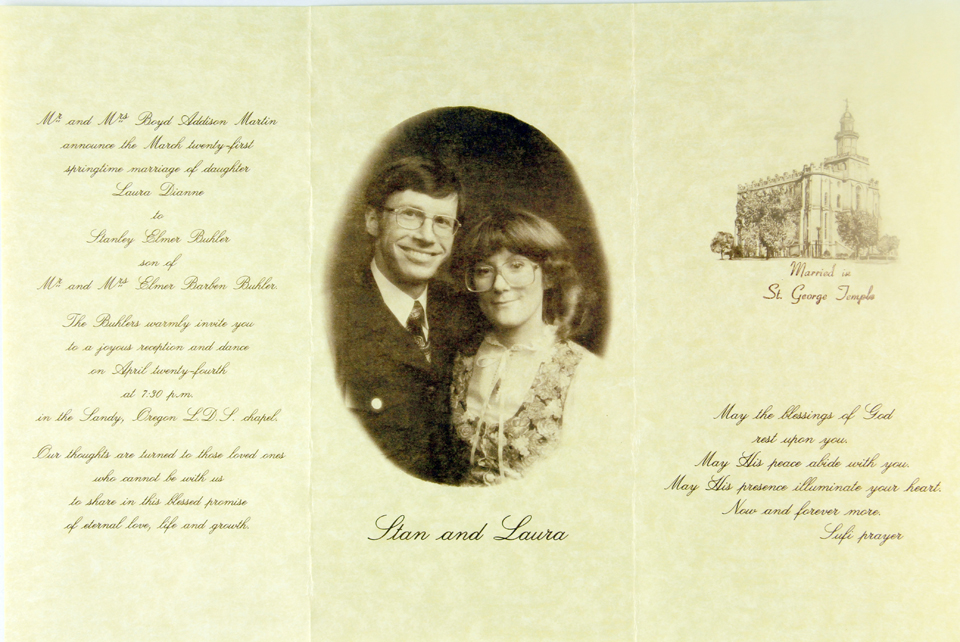 Mr and Mrs Boyd Addison Martin
announce the March twenty-first
springtime marriage of daughter
Laura Dianne
to
Stanley Elmer Buhler
son of
Mr and Mrs Elmer Barben Buhler.
The Buhlers warmly invite you
to a joyous reception and dance
on April twenty-fourth
at 7:30 p.m.
in the Sandy, Oregon L.D.S. chapel.
Our thoughts are turned to those loved ones
who cannot be with us
to share in this blessed promise
of eternal love, life and growth.
Stan and Laura
Married in
St. George Temple
May the blessings of God
rest upon you.
May His peace abide with you.
May His presence illuminate your heart.
Now and forever more.
Sufi prayer